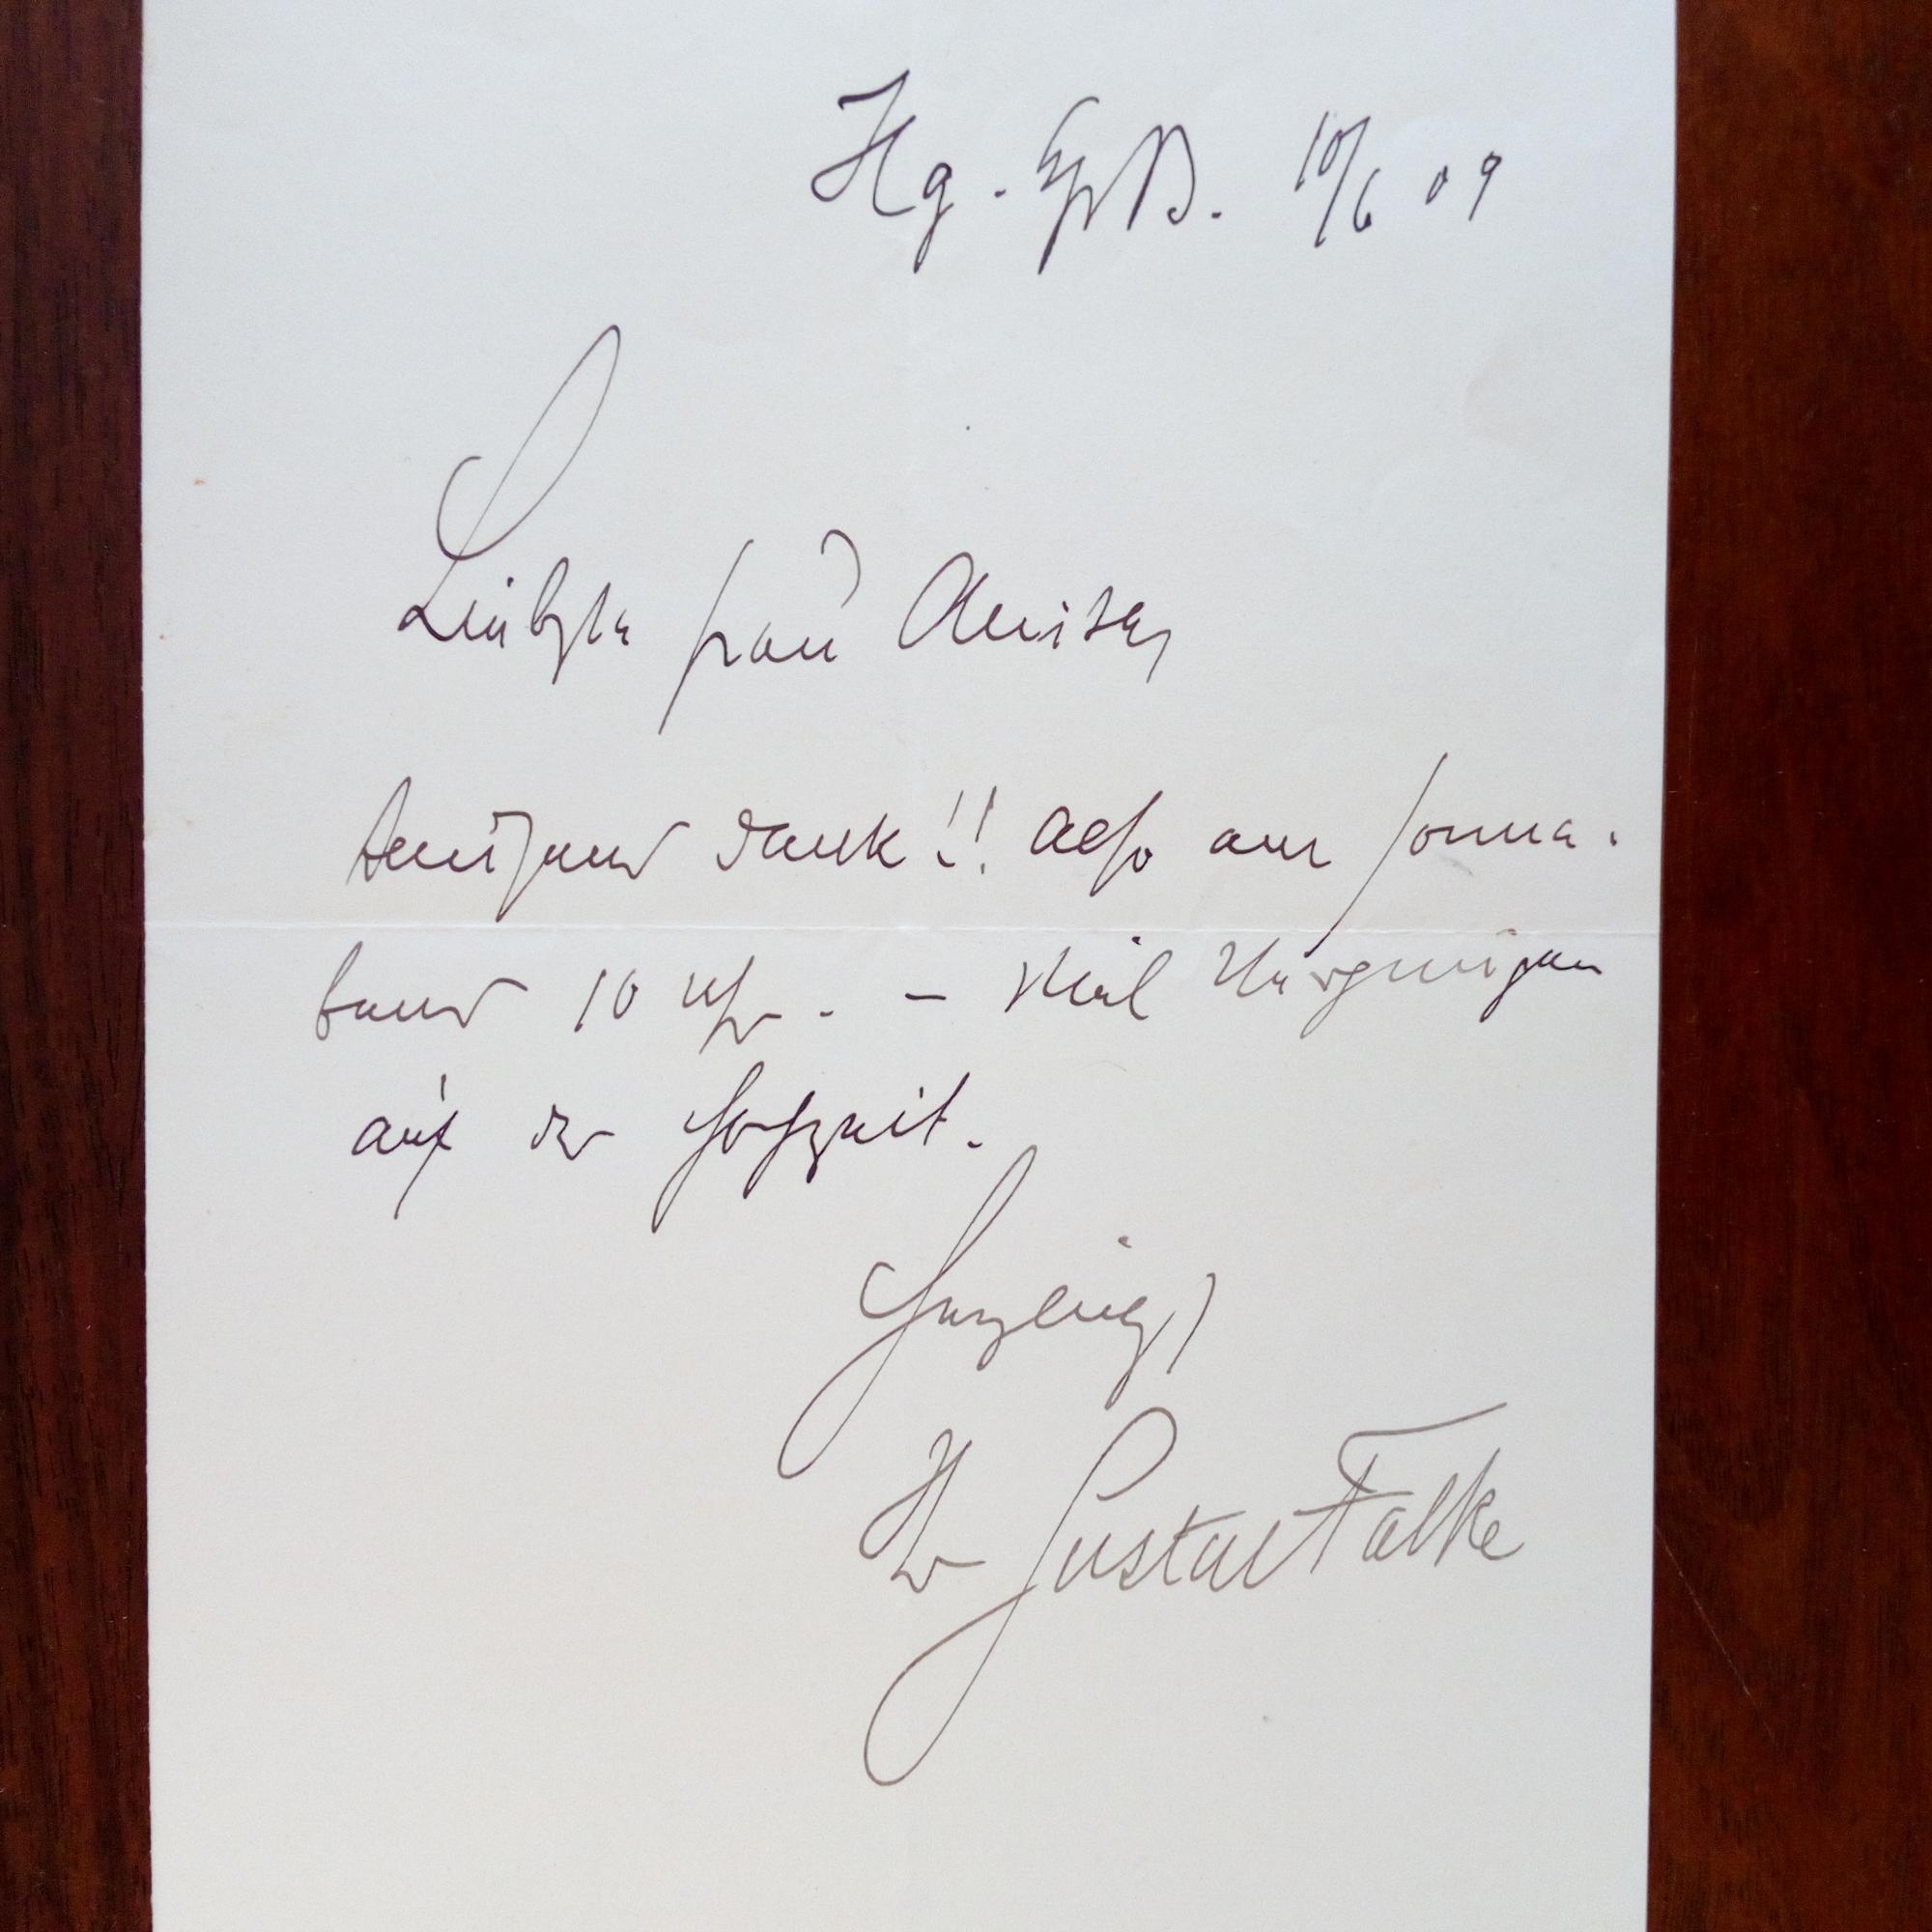 Hbg. Grß B. 10/6 09
Liebste Frau
tausend Dank!! Also am Sonna-
bend 10 Uhr. – Viel Vergnügen
auf der Hochzeit.
Herzlichst
Ihr Gustav Falke